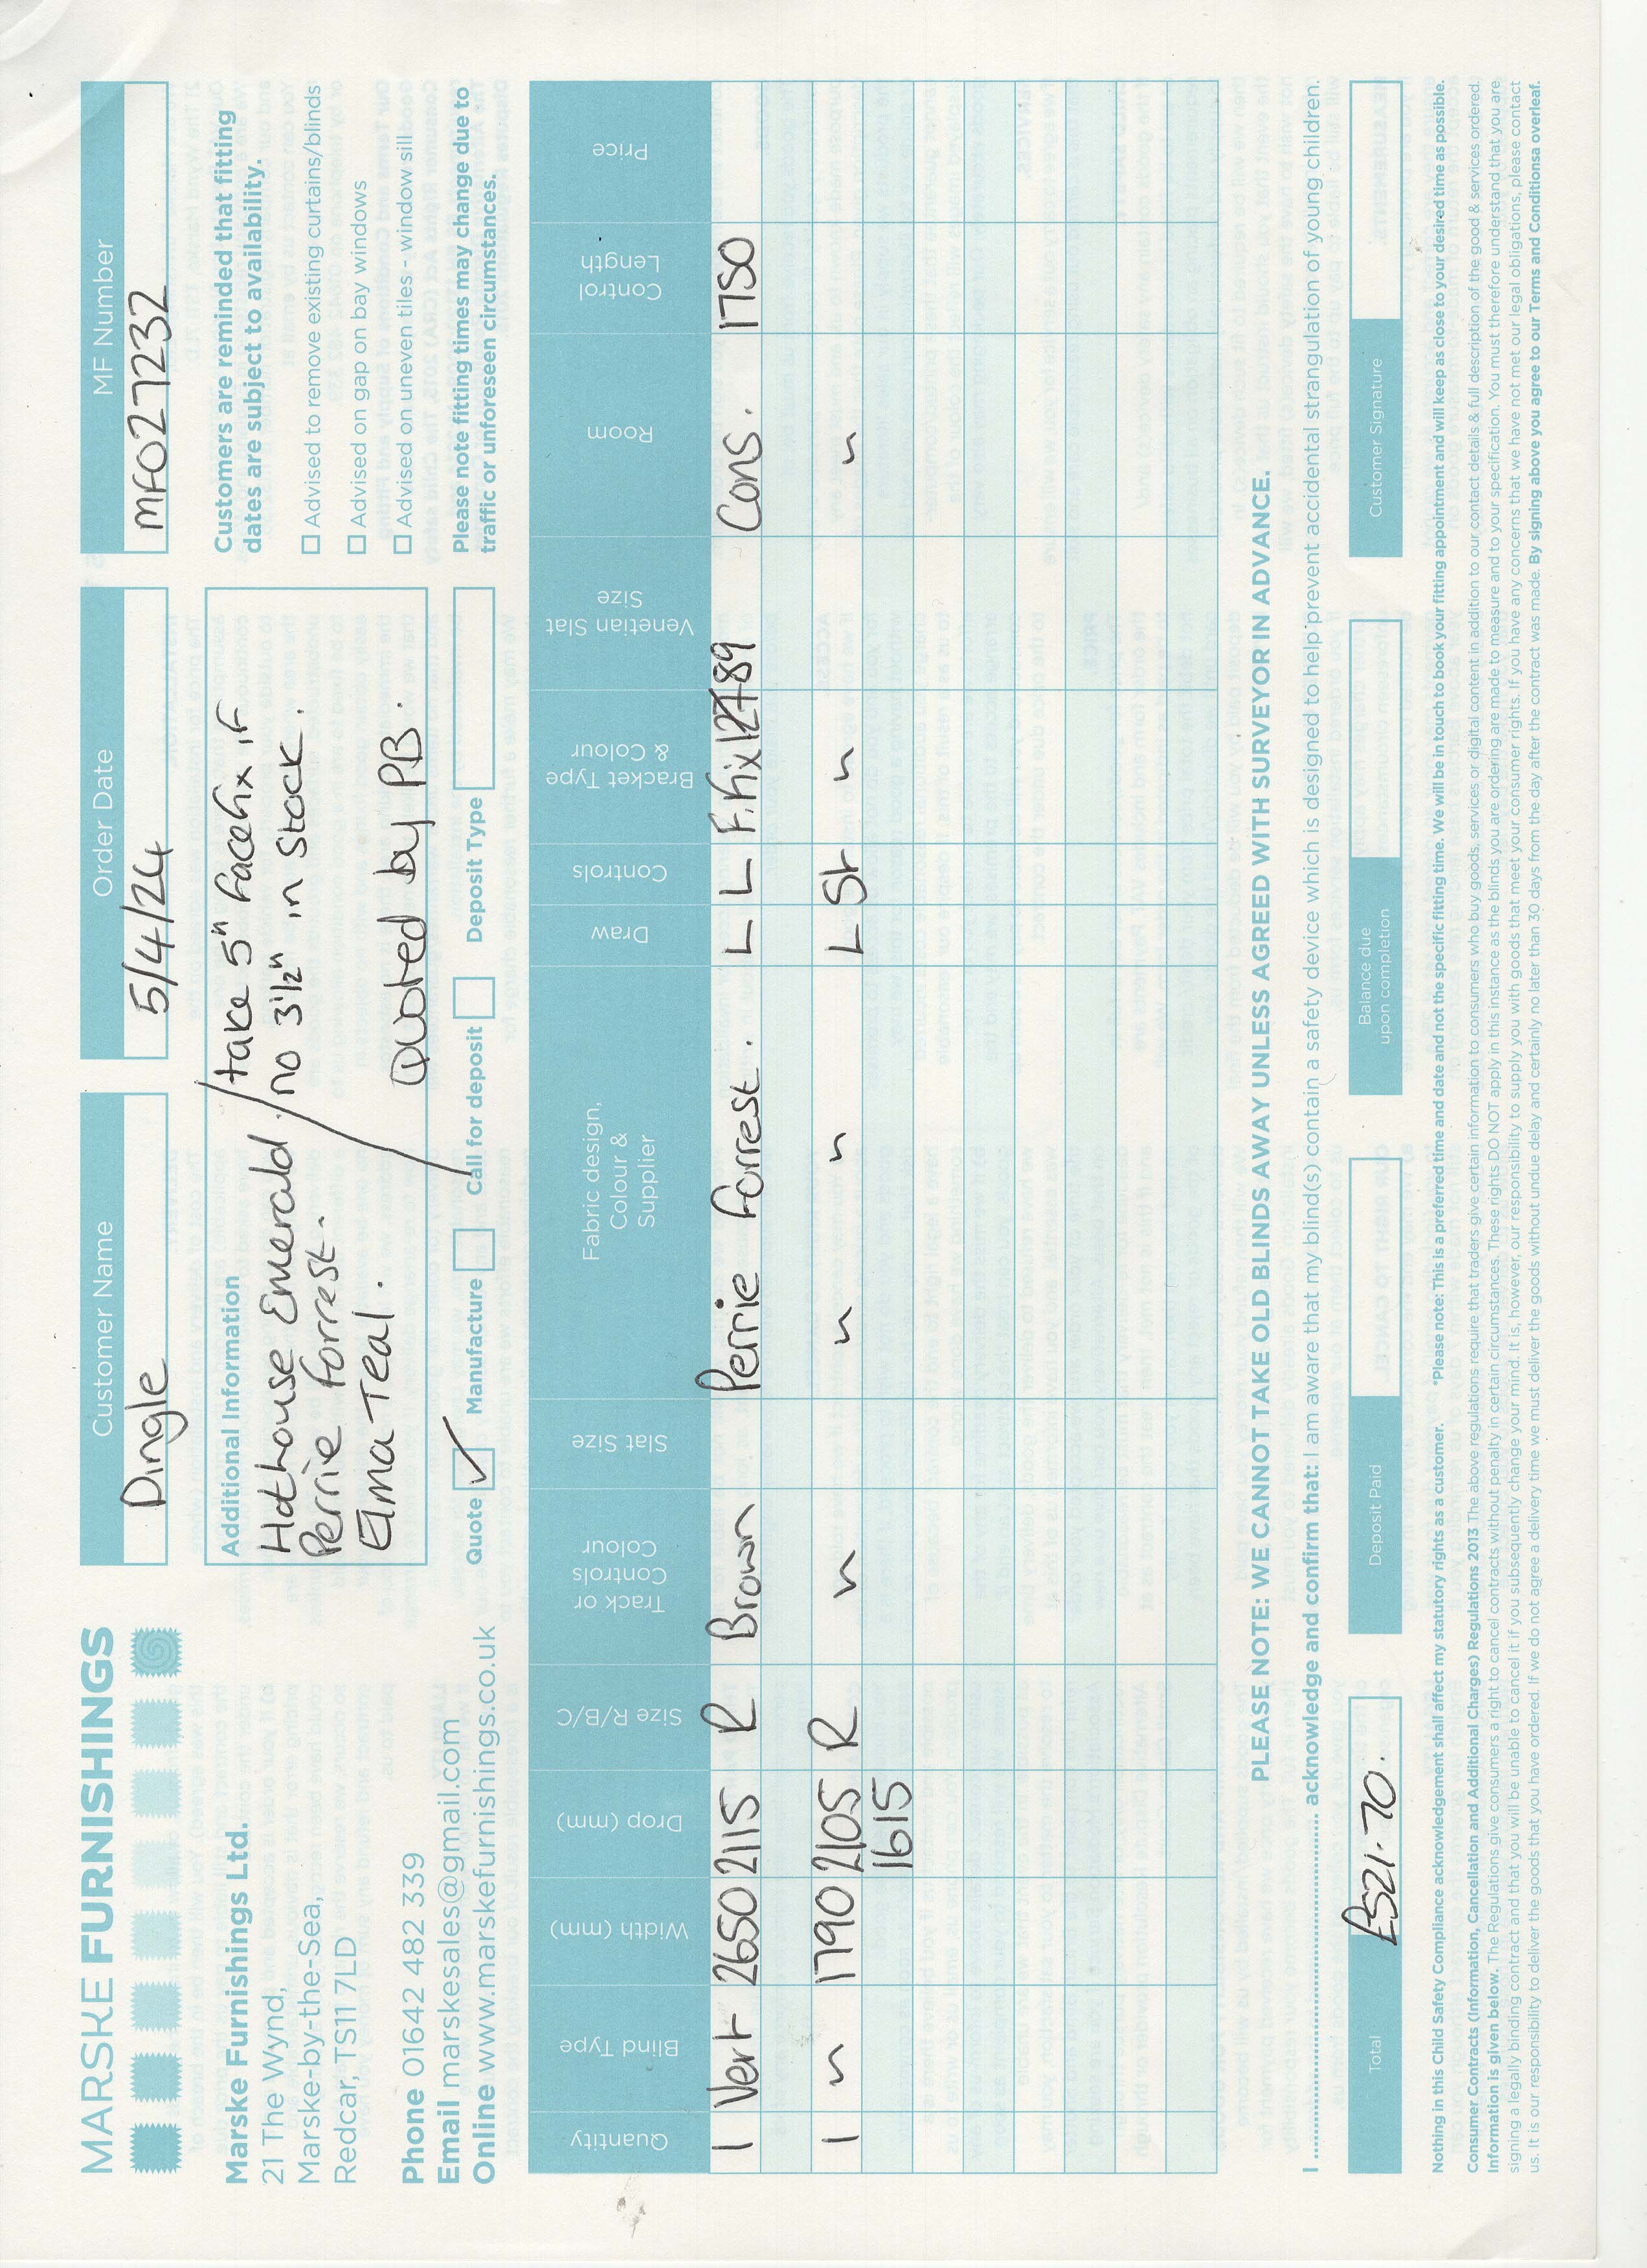 MARSKE FURNISHINGS
Marske Furnishings Ltd.
21 The Wynd,
Marske-by-the-Sea,
Redcar, TS11 7LD
Phone 01642 482 339
Email marskesales@gmail.com
Online www.marskefurnishings.co.uk
Customer Name
Dingle
Order Date
5/4/24
MF Number
MF027232
Additional Information
Hothouse Emerald
Perrie Forrest.
Elma Teal.
take 5" facefix, if
no 3½" in Stock.
Quoted by PB.
Customers are reminded that fitting
dates are subject to availability.
☐ Advised to remove existing curtains/blinds
☐ Advised on gap on bay windows
☐ Advised on uneven tiles - window sill
Please note fitting times may change due to
traffic or unforeseen circumstances.
Quote ✓ Manufacture ☐ Call for deposit ☐ Deposit Type
Quantity Blind Type Width (mm) Drop (mm) Size R/B/C Track or Controls Colour Slat Size Fabric design, Colour & Supplier Draw Controls Bracket Type & Colour Venetian Slat Size Room Control Length Price
1 Vert 2650 2115 R Brown Perrie Forrest. L L F.fix 127 89 Cons. 1750
1 " 1790 2105 R " " " L St " "
1615
PLEASE NOTE: WE CANNOT TAKE OLD BLINDS AWAY UNLESS AGREED WITH SURVEYOR IN ADVANCE.
I .......... acknowledge and confirm that: I am aware that my blind(s) contain a safety device which is designed to help prevent accidental strangulation of young children.
Total
£521.70.
Deposit Paid
Balance due
upon completion
Customer Signature
Nothing in this Child Safety Compliance acknowledgement shall affect my statutory rights as a customer. *Please note: This is a preferred time and date and not the specific fitting time. We will be in touch to book your fitting appointment and will keep as close to your desired time as possible.
Consumer Contracts (Information, Cancellation and Additional Charges) Regulations 2013 The above regulations require that traders give certain information to consumers who buy goods, services or digital content in addition to our contact details & full description of the good & services ordered.
Information is given below. The Regulations give consumers a right to cancel contracts without penalty in certain circumstances. These rights DO NOT apply in this instance as the blinds you are ordering are made to measure and to your specification. You must therefore understand that you are
signing a legally binding contract and that you will be unable to cancel it if you subsequently change your mind. It is, however, our responsibility to supply you with goods that meet your consumer rights. If you have any concerns that we have not met our legal obligations, please contact
us. It is our responsibility to deliver the goods that you have ordered. If we do not agree a delivery time we must deliver the goods without undue delay and certainly no later than 30 days from the day after the contract was made. By signing above you agree to our Terms and Conditionsa overleaf.